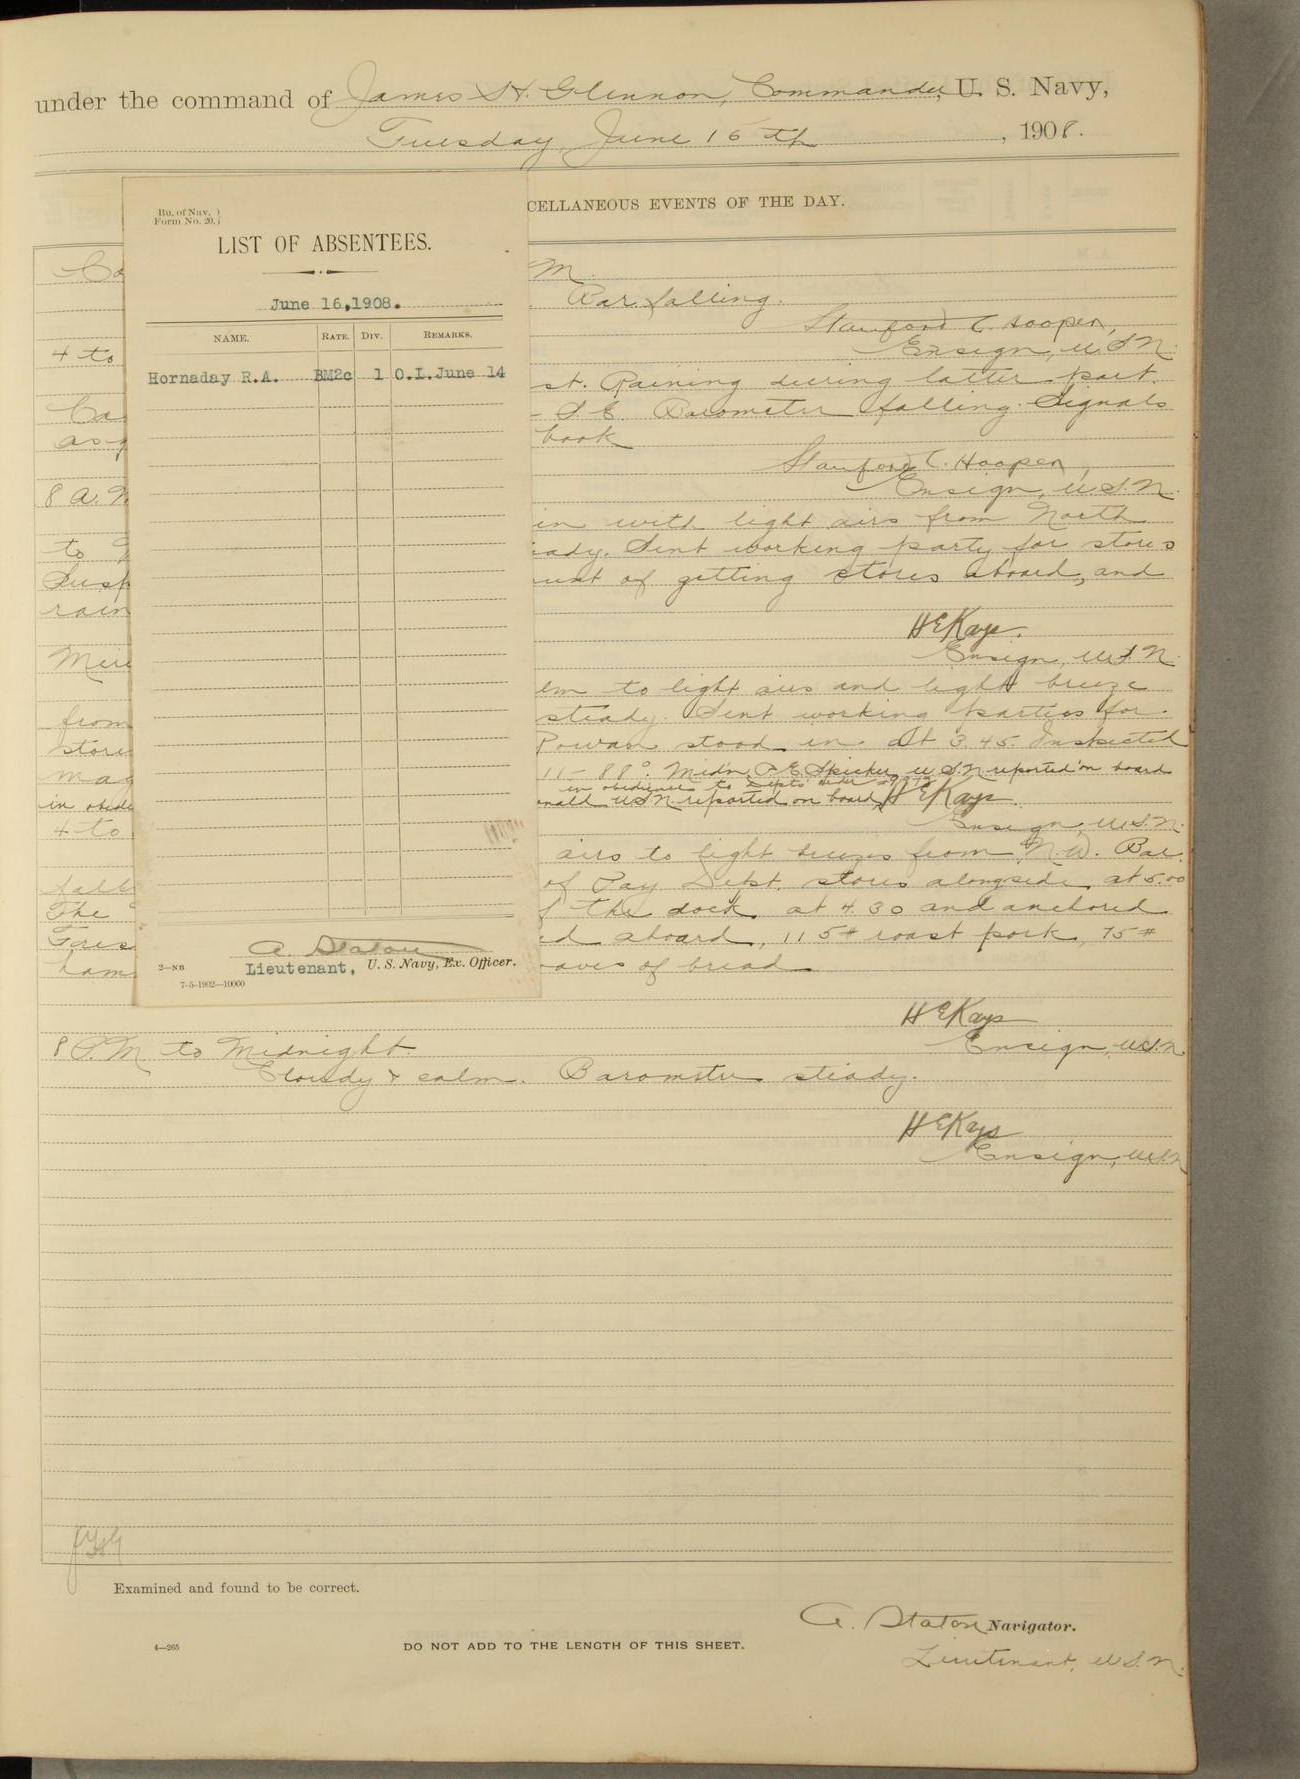 under the command of James H. Glennon, Commander, U. S. Navy,
Tuesday, June 16th, 1908.
CELLANEOUS EVENTS OF THE DAY.
Bu. of Nav. }
Form No. 20. }
LIST OF ABSENTEES.
June 16, 1908.
NAME. RATE. DIV. REMARKS.
Hornaday R.A. BM2c 1 O.L. June 14
A. Staton
Lieutenant, U. S. Navy, Ex. Officer.
2—NB
7-5-1902—10000
M.
Bar. falling.
Stanford C. Hooper,
Ensign, U.S.N.
4 to
st. Raining during latter part.
S.E. Barometer falling. Signals
as
book
Stanford C. Hooper,
Ensign, U.S.N.
8 A.M.
in with light airs from North
to
ady. Sent working party for stores
Susp
unt of getting stores aboard, and
rain
H E Kays.
Ensign, U.S.N.
Meri
lm to light airs and light breeze
from
steady. Sent working parties for
store
Rowan stood in at 3.45. Inspected
mag
88°. Midn. P. E. Speicher U.S.N. reported on board
in obedience to Dept's order
in obedi
U.S.N. reported on board H E Kays.
Ensign, U.S.N.
4 to
airs to light breezes from N.W. Bar.
fall
of Pay Dept. stores alongside at 5.00
The
f the dock at 4.30 and anchored
Fres
ed aboard, 115# roast pork, 75#
ham
oaves of bread
H E Kays
Ensign, U.S.N.
8 P.M. to Midnight.
Cloudy & calm. Barometer steady.
H E Kays
Ensign, U.S.N.
JHG
Examined and found to be correct.
A. Staton Navigator.
Lieutenant, U.S.N.
4—265
DO NOT ADD TO THE LENGTH OF THIS SHEET.